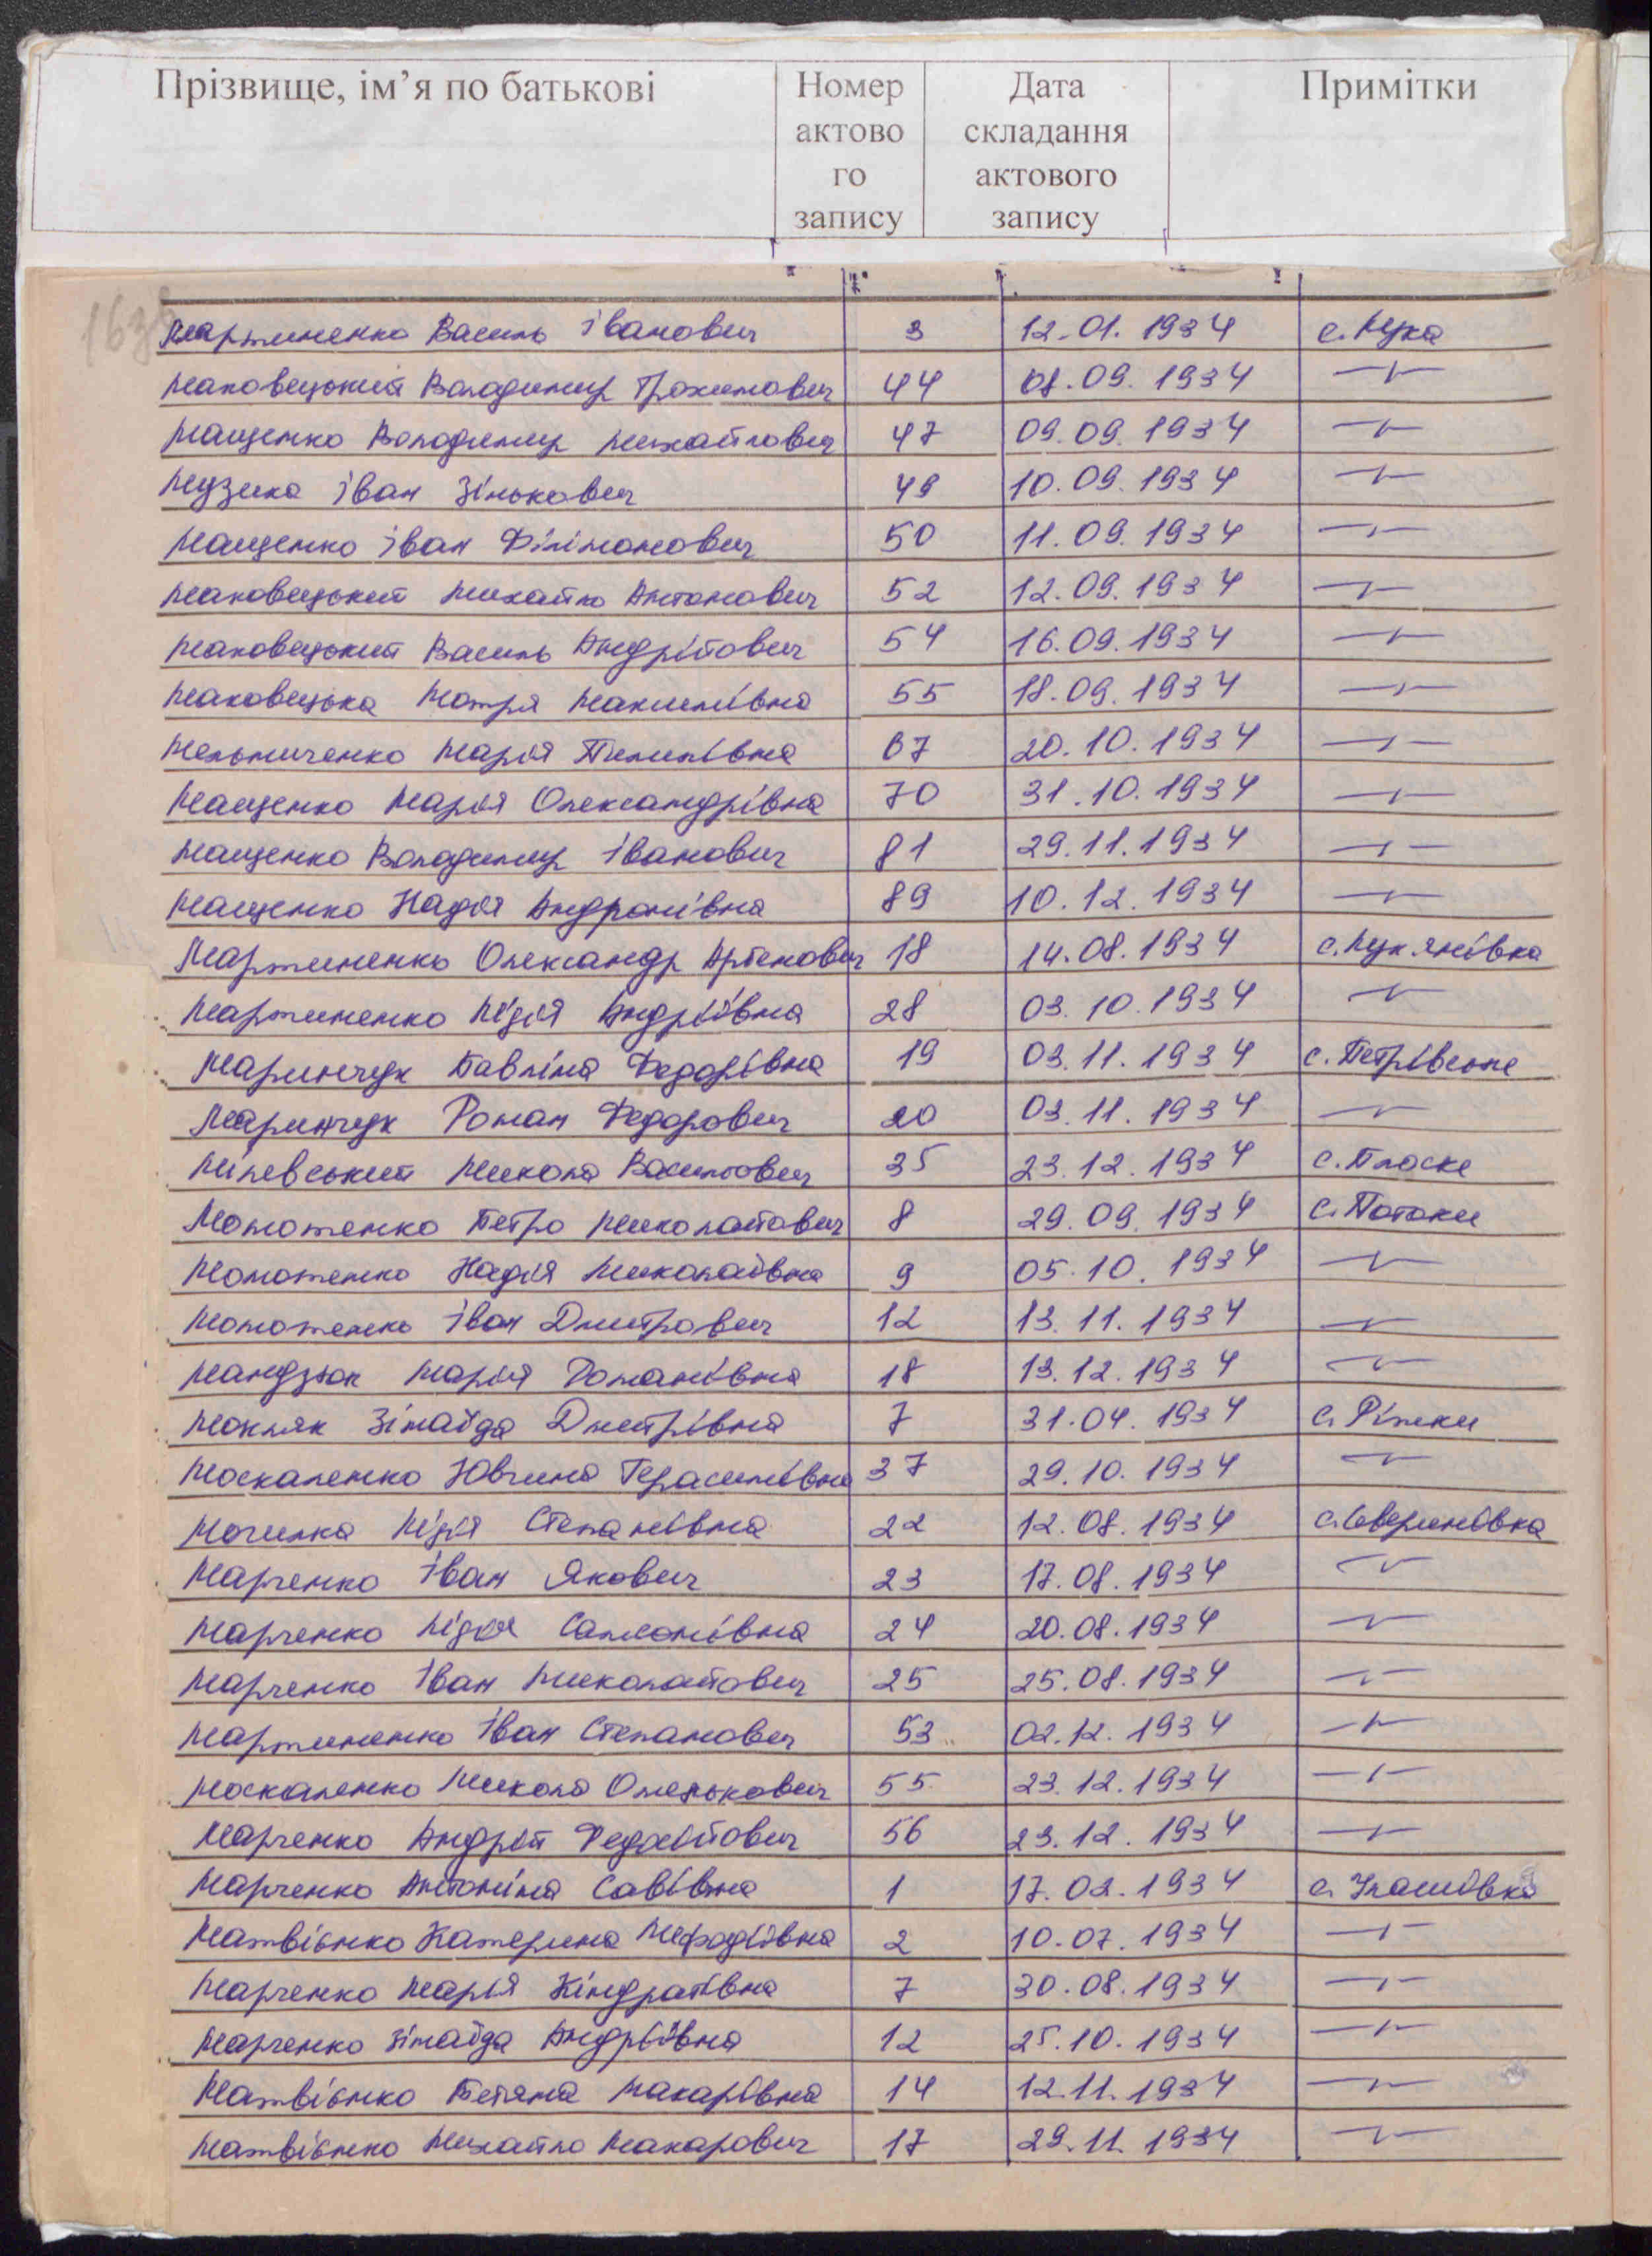 Прізвище, ім’я по батькові Номер актово го запису Дата складання актового запису Примітки
163
Мартиненко Василь Іванович 3 12.01.1934 с. Лука
Маковецький Володимир Трохимович 44 08.09.1934 —"—
Мащенко Володимир Михайлович 47 09.09.1934 —"—
Музика Іван Зінькович 49 10.09.1934 —"—
Мащенко Іван Філімонович 50 11.09.1934 —"—
Маковецький Михайло Антонович 52 12.09.1934 —"—
Маковецький Василь Андрійович 54 16.09.1934 —"—
Маковецька Мотря Макимівна 55 18.09.1934 —"—
Мельниченко Марія Пилипівна 67 20.10.1934 —"—
Мащенко Марія Олександрівна 70 31.10.1934 —"—
Мащенко Володимир Іванович 81 29.11.1934 —"—
Мащенко Надія Андронівна 89 10.12.1934 —"—
Мартиненко Олександр Артемович 18 14.08.1934 с. Лук'янівка
Мартиненко Лідія Андріївна 28 03.10.1934 —"—
Маринчук Павліна Федорівна 19 03.11.1934 с. Петрівське
Маринчук Роман Федорович 20 03.11.1934 —"—
Мілевський Микола Васильович 35 23.12.1934 с. Пласке
Момотенко Петро Миколайович 8 29.09.1934 с. Потоки
Момотенко Надія Миколаївна 9 05.10.1934 —"—
Момотенко Іван Дмитрович 12 13.11.1934 —"—
Мандзюк Марія Романівна 18 13.12.1934 —"—
Мокляк Зінаїда Дмитрівна 7 31.04.1934 с. Ріжки
Москаленко Ювчина Герасимівна 37 29.10.1934 —"—
Мочилка Лідія Степанівна 22 12.08.1934 с. Северинівка
Марченко Іван Якович 23 17.08.1934 —"—
Марченко Лідія Самсонівна 24 20.08.1934 —"—
Марченко Іван Миколайович 25 25.08.1934 —"—
Мартиненко Іван Степанович 53 02.12.1934 —"—
Москаленко Микола Омелькович 55 23.12.1934 —"—
Марченко Андрій Федосійович 56 23.12.1934 —"—
Марченко Антоніна Савівна 1 17.02.1934 с. Улашівка
Матвієнко Катерина Мефодіївна 2 10.07.1934 —"—
Марченко Марія Кіндратівна 7 30.08.1934 —"—
Марченко Зінаїда Андріївна 12 25.10.1934 —"—
Матвієнко Тетяна Макарівна 14 12.11.1934 —"—
Матвієнко Михайло Макарович 17 29.11.1934 —"—